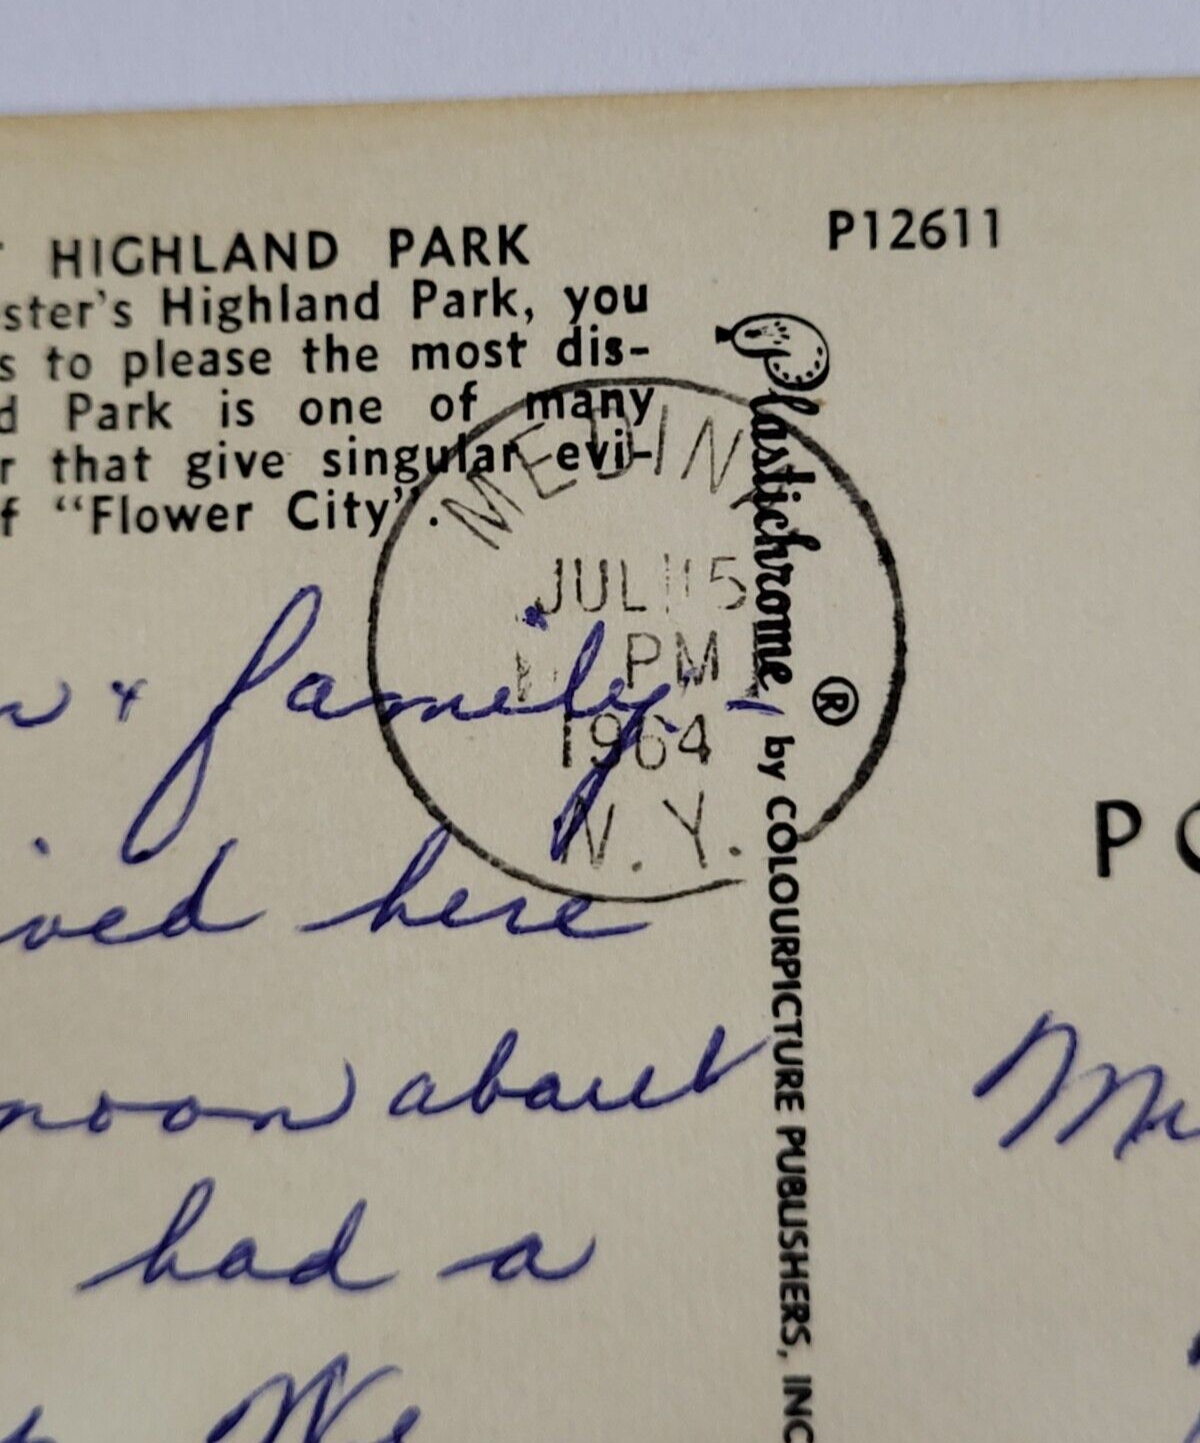 HIGHLAND PARK
ster's Highland Park, you
s to please the most dis-
d Park is one of many
r that give singular evi-
f "Flower City".
P12611
Plastichrome ® by COLOURPICTURE PUBLISHERS, INC
MEDIN
JUL 15
PM
1964
N.Y.
& family -
ved here
noon about
had a
We
PO